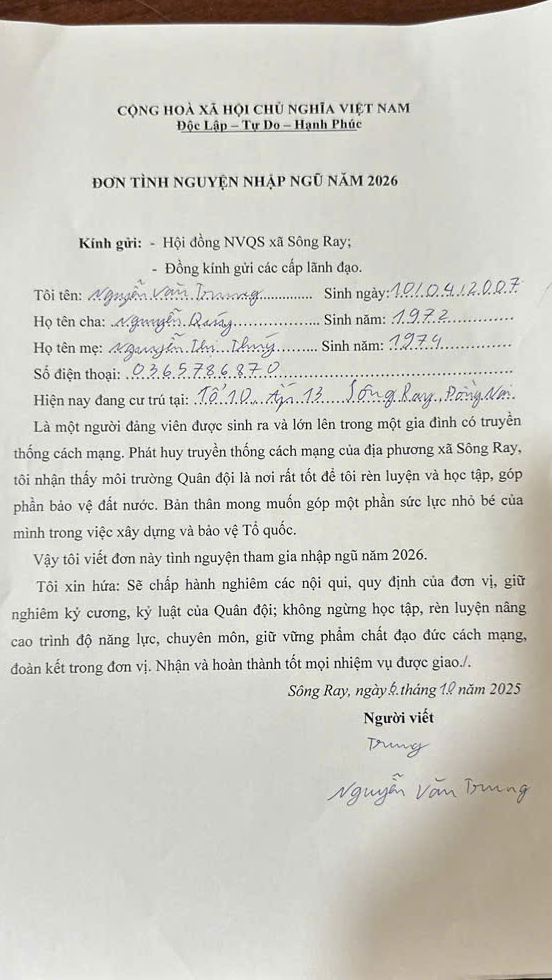 CỘNG HOÀ XÃ HỘI CHỦ NGHĨA VIỆT NAM
Độc Lập – Tự Do – Hạnh Phúc
ĐƠN TÌNH NGUYỆN NHẬP NGŨ NĂM 2026
Kính gửi: - Hội đồng NVQS xã Sông Ray;
- Đồng kính gửi các cấp lãnh đạo.
Tôi tên: Nguyễn Văn Trung............. Sinh ngày: 10/04/2007
Họ tên cha: Nguyễn Quý.................. Sinh năm: 1972...............
Họ tên mẹ: Nguyễn Thị Thuý......... Sinh năm: 1974...............
Số điện thoại: 0365786870...............................................
Hiện nay đang cư trú tại: Tổ 10, Ấp 13 Sông Ray, Đồng Nai.
Là một người đảng viên được sinh ra và lớn lên trong một gia đình có truyền
thống cách mạng. Phát huy truyền thống cách mạng của địa phương xã Sông Ray,
tôi nhận thấy môi trường Quân đội là nơi rất tốt để tôi rèn luyện và học tập, góp
phần bảo vệ đất nước. Bản thân mong muốn góp một phần sức lực nhỏ bé của
mình trong việc xây dựng và bảo vệ Tổ quốc.
Vậy tôi viết đơn này tình nguyện tham gia nhập ngũ năm 2026.
Tôi xin hứa: Sẽ chấp hành nghiêm các nội qui, quy định của đơn vị, giữ
nghiêm kỷ cương, kỷ luật của Quân đội; không ngừng học tập, rèn luyện nâng
cao trình độ năng lực, chuyên môn, giữ vững phẩm chất đạo đức cách mạng,
đoàn kết trong đơn vị. Nhận và hoàn thành tốt mọi nhiệm vụ được giao./.
Sông Ray, ngày 6 tháng 10 năm 2025
Người viết
Trung
Nguyễn Văn Trung